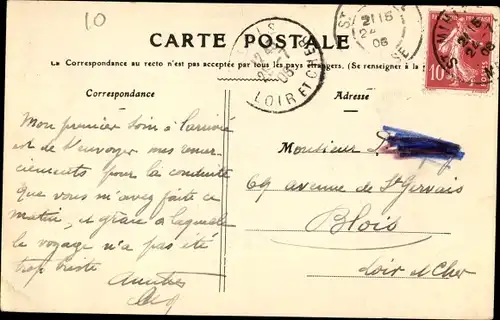 10
CARTE POSTALE
La Correspondance au recto n'est pas acceptée par tous les pays étrangers. (Se renseigner à la
Correspondance
Adresse
LOIR ET CHER
08
21 15
24
08
10
Mon premier soin à l'arrivée
est de t'envoyer mes remer-
ciements pour la conduite
que vous m'avez faite ce
matin, et grâce à laquelle
le voyage n'a pas été
trop triste
Monsieur
69 avenue de St Gervais
Blois
Loir et Cher